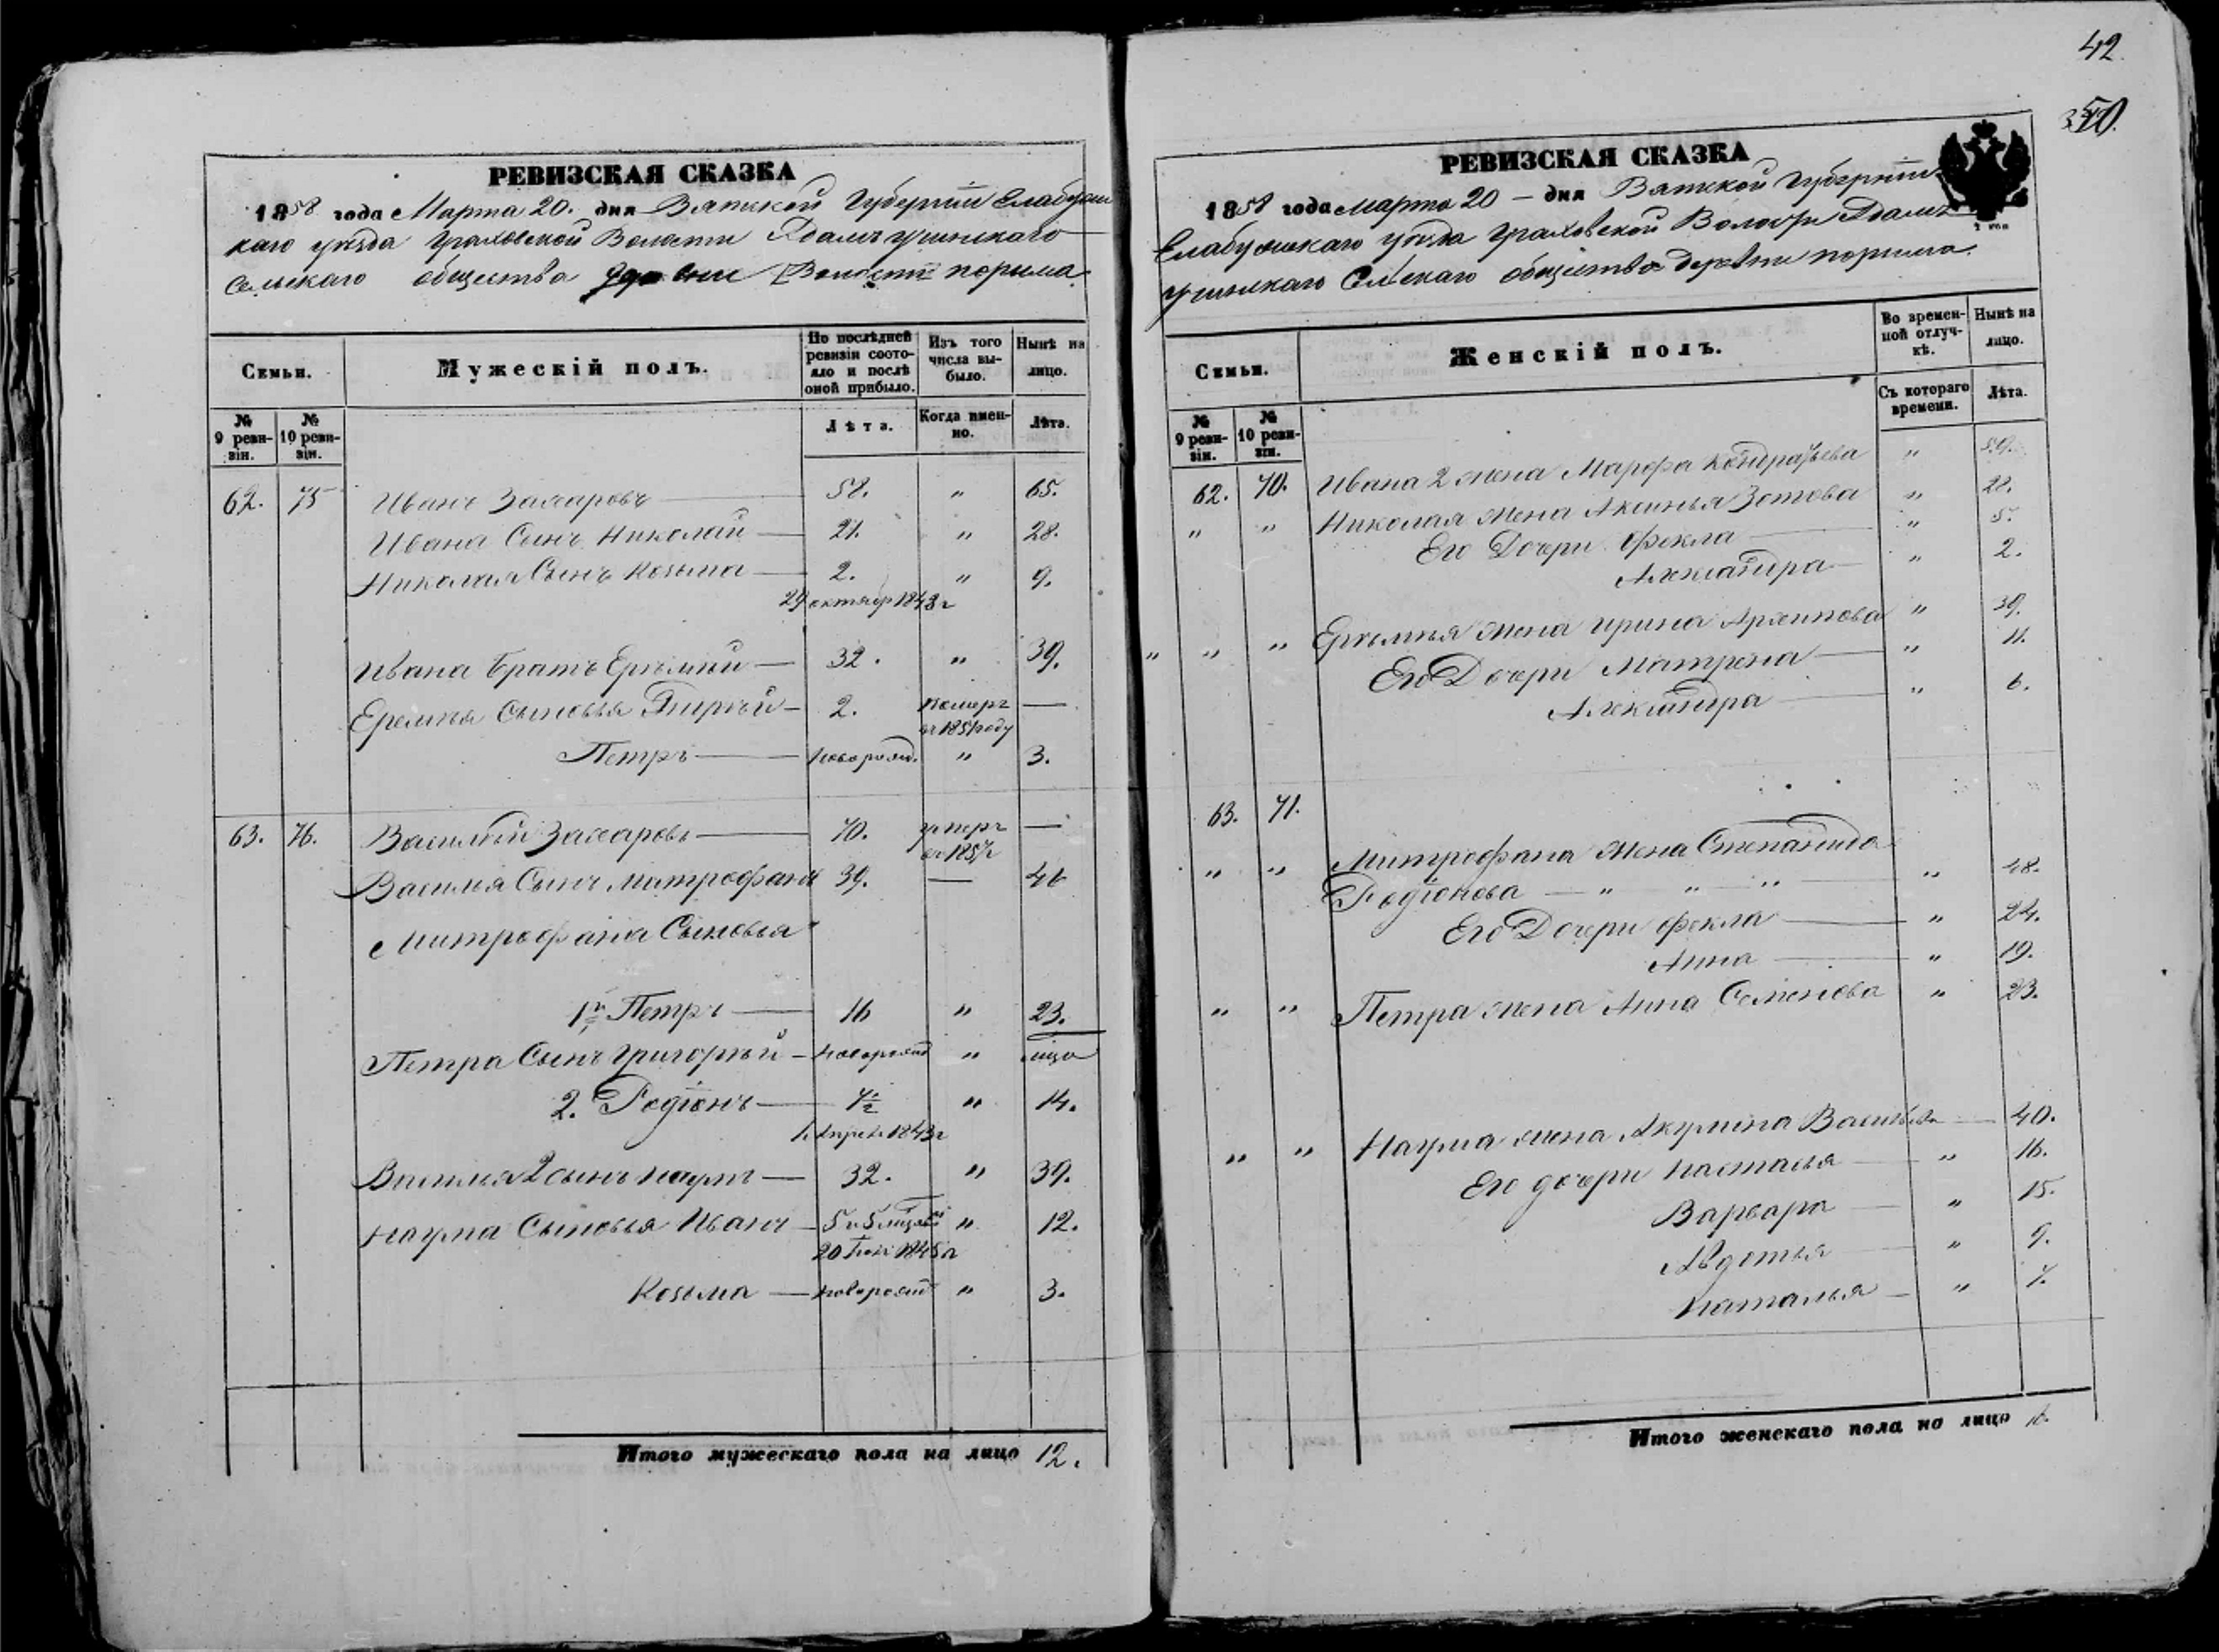 42
РЕВИЗСКАЯ СКАЗКА
1858 года Марта 20. дня Вятской Губерніи Елабужс
каго уѣзда Граховской Волости Адамъ учинскаго
Сельскаго общества порыма.
Семьи.
Мужескій полъ.
По послѣдней ревизіи состояло и послѣ оной прибыло.
Изъ того числа выбыло.
Нынѣ на лицо.
№ 9 ревизіи.
№ 10 ревизіи.
Лѣта.
Когда именно.
Лѣта.
62. 75 Иванъ Захаровъ 58. " 65.
Ивана Сынъ Николай 21. " 28.
Николая Сынъ Козьма 2. " 9.
29 октября
Ивана Братъ Еремѣй 32. " 39.
Еремѣя Сыновья 2. померъ —
въ 1851 году
Петръ новорожд. " 3.
63. 76. Василій Захаровъ 70. умеръ —
въ 1857г
Василья Сынъ Митрофанъ 39. — 46
Митрофана Сыновья
1й Петръ 16 " 23.
Петра Сынъ Григорій новорожд "
2. Родіонъ 7½ " 14.
Василья 2 сынъ Наумъ 32. " 39.
Наума Сыновья Иванъ " 12.
Козьма новорожд " 3.
Итого мужескаго пола на лицо 12.
РЕВИЗСКАЯ СКАЗКА
1858 года марта 20 — дня Вятской Губерніи
Елабужскаго уѣзда Граховской Волости Адамъ
учинскаго Сельскаго общества деревни порыма.
Семьи.
Женскій полъ.
Во временной отлучкѣ.
Нынѣ на лицо.
№ 9 ревизіи.
№ 10 ревизіи.
Съ котораго времени.
Лѣта.
62. 70. Ивана 2 жена Марфа Кондратьева " 59.
" " Николая жена Аксинья Зотова " 28.
Его Дочери Фекла " 5.
Александра " 2.
" " " Еремѣя жена Ирина " 39.
Его Дочери Матрена " 11.
Александра " 6.
63. 71.
" " Митрофана жена Степанида
Родіонова — " " " " 48.
Его Дочери Фекла " 24.
Анна " 19.
" " Петра жена Анна Семенова " 23.
" " Наума жена Акулина Васильева 40.
Его дочери Настасья " 16.
Варвара " 15.
Авдотья " 9.
Наталья " 7.
Итого женскаго пола на лицо 16.